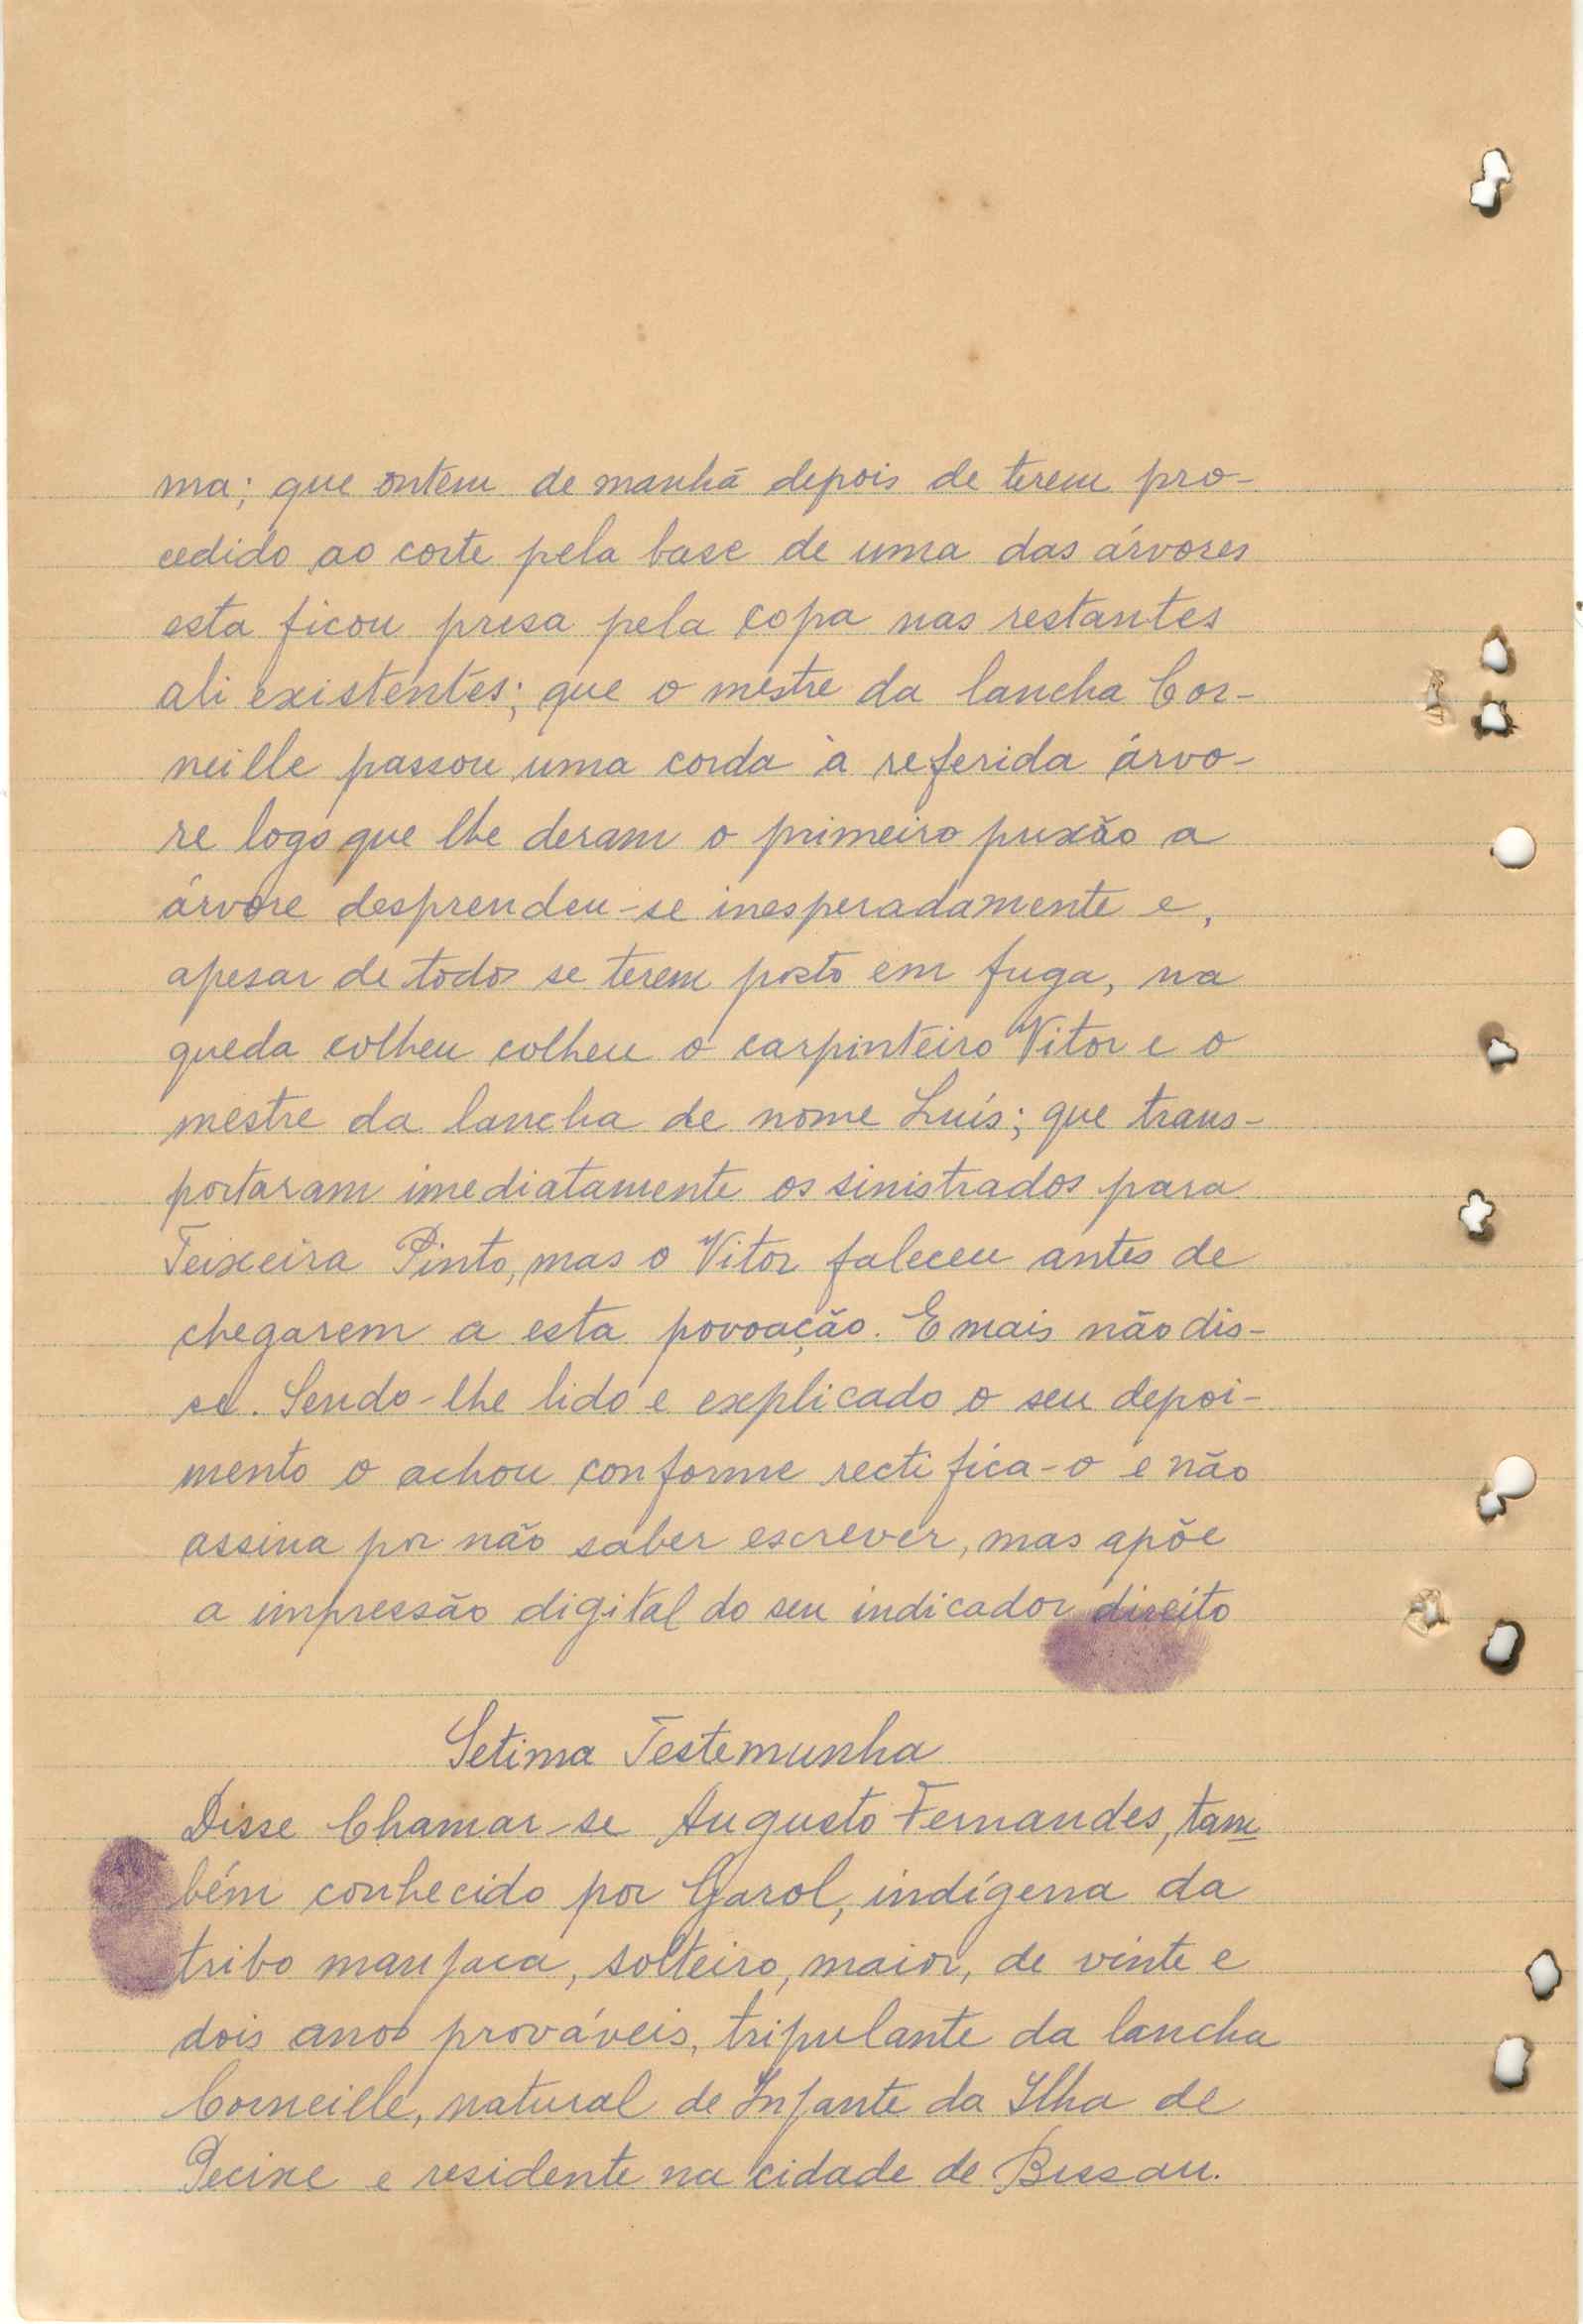 ma; que ontem de manhã depois de terem pro-
cedido ao corte pela base de uma das árvores
esta ficou presa pela copa nas restantes
ali existentes; que o mestre da lancha Cor-
neille passou uma corda à referida árvo-
re logo que lhe deram o primeiro puxão a
árvore desprendeu-se inesperadamente e,
apesar de todos se terem posto em fuga, na
queda colheu colheu o carpinteiro Vitor e o
mestre da lancha de nome Luís; que trans-
portaram imediatamente os sinistrados para
Teixeira Pinto, mas o Vitor faleceu antes de
chegarem a esta povoação. E mais não dis-
se. Sendo-lhe lido e explicado o seu depoi-
mento o achou conforme rectifica-o e não
assina por não saber escrever, mas apõe
a impressão digital do seu indicador direito
Setima Testemunha
Disse Chamar-se Augusto Fernandes, tam
bém conhecido por Garol, indígena da
tribo manjaca, solteiro, maior, de vinte e
dois anos prováveis, tripulante da lancha
Corneille, natural de Infante da Ilha de
Pecixe e residente na cidade de Bissau.